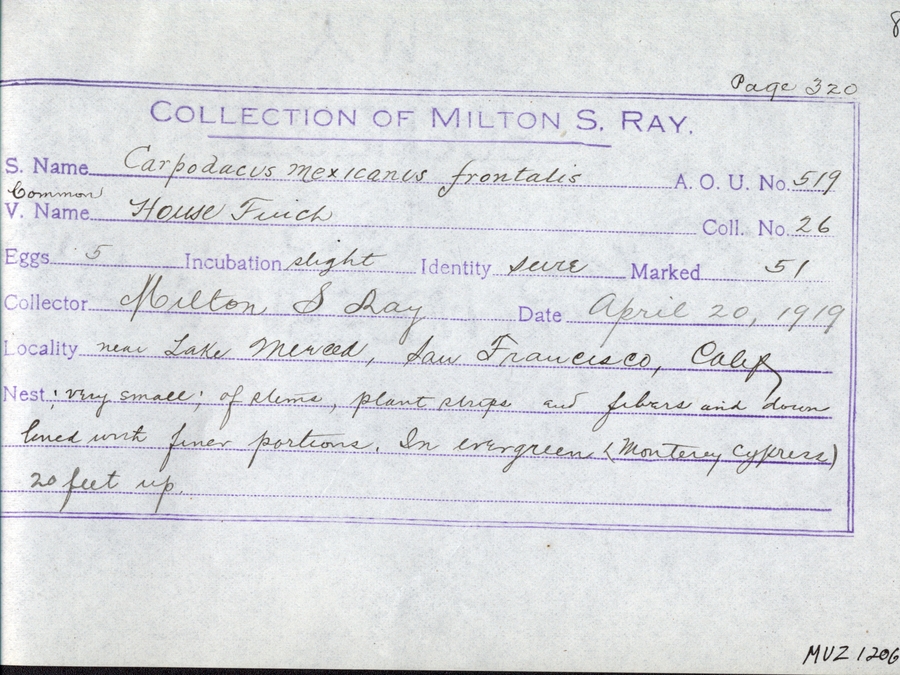 8
Page 320
COLLECTION OF MILTON S. RAY.
S. Name Carpodacus mexicanus frontalis A. O. U. No. 519
Common
V. Name House Finch Coll. No. 26
Eggs 5 Incubation slight Identity sure Marked 51
Collector Milton S Ray Date April 20, 1919
Locality near Lake Merced, San Francisco, Calif
Nest: very small; of stems, plant strips and fibers and down
lined with finer portions. In evergreen (Monterey Cypress)
20 feet up.
MUZ 1206